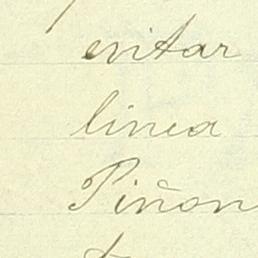 evitar
linea
Piñon